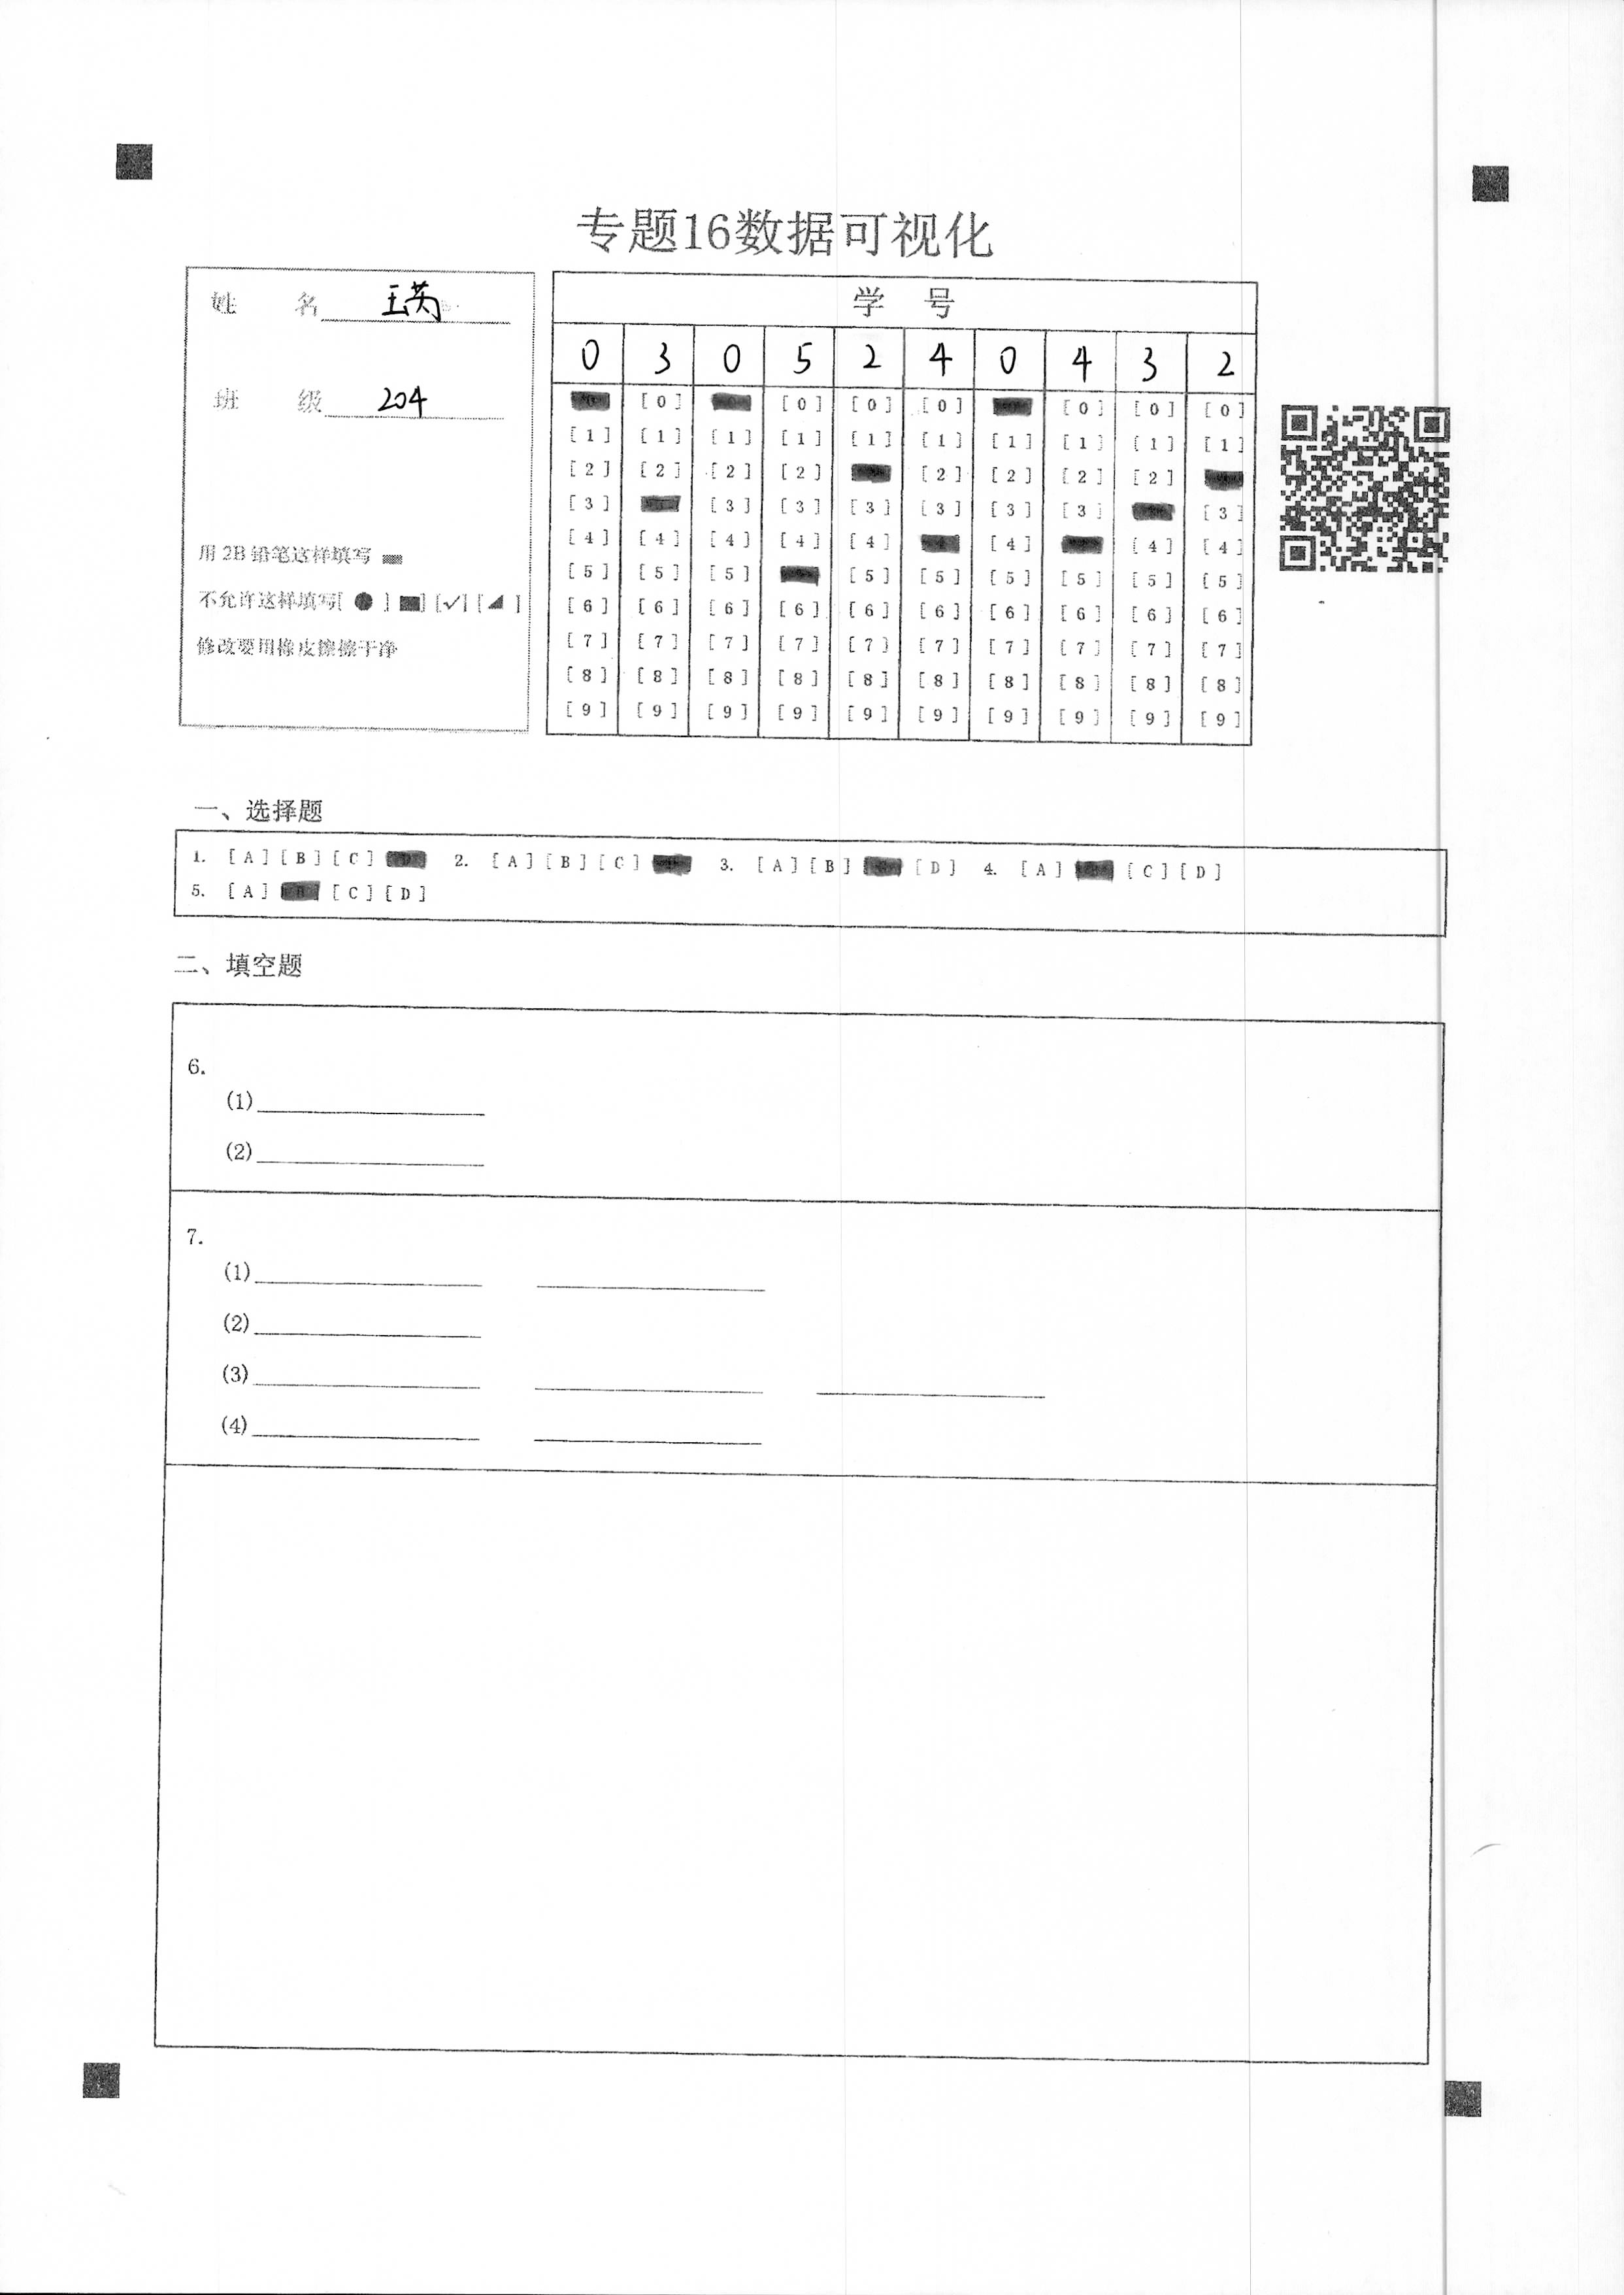 专题16数据可视化
姓 名 王英
班 级 204
用 2B 铅笔这样填写
不允许这样填写[ ● ] ■] [✓] [◢ ]
修改要用橡皮擦擦干净
学 号
0 3 0 5 2 4 0 4 3 2
[0] [0] [0] [0] [0] [0] [0]
[1] [1] [1] [1] [1] [1] [1] [1] [1] [1]
[2] [2] [2] [2] [2] [2] [2] [2]
[3] [3] [3] [3] [3] [3] [3] [3]
[4] [4] [4] [4] [4] [4] [4] [4]
[5] [5] [5] [5] [5] [5] [5] [5] [5]
[6] [6] [6] [6] [6] [6] [6] [6] [6] [6]
[7] [7] [7] [7] [7] [7] [7] [7] [7] [7]
[8] [8] [8] [8] [8] [8] [8] [8] [8] [8]
[9] [9] [9] [9] [9] [9] [9] [9] [9] [9]
一、选择题
1. [A] [B] [C] 2. [A] [B] [C] 3. [A] [B] [D] 4. [A] [C] [D]
5. [A] [C] [D]
二、填空题
6.
(1)
(2)
7.
(1)
(2)
(3)
(4)